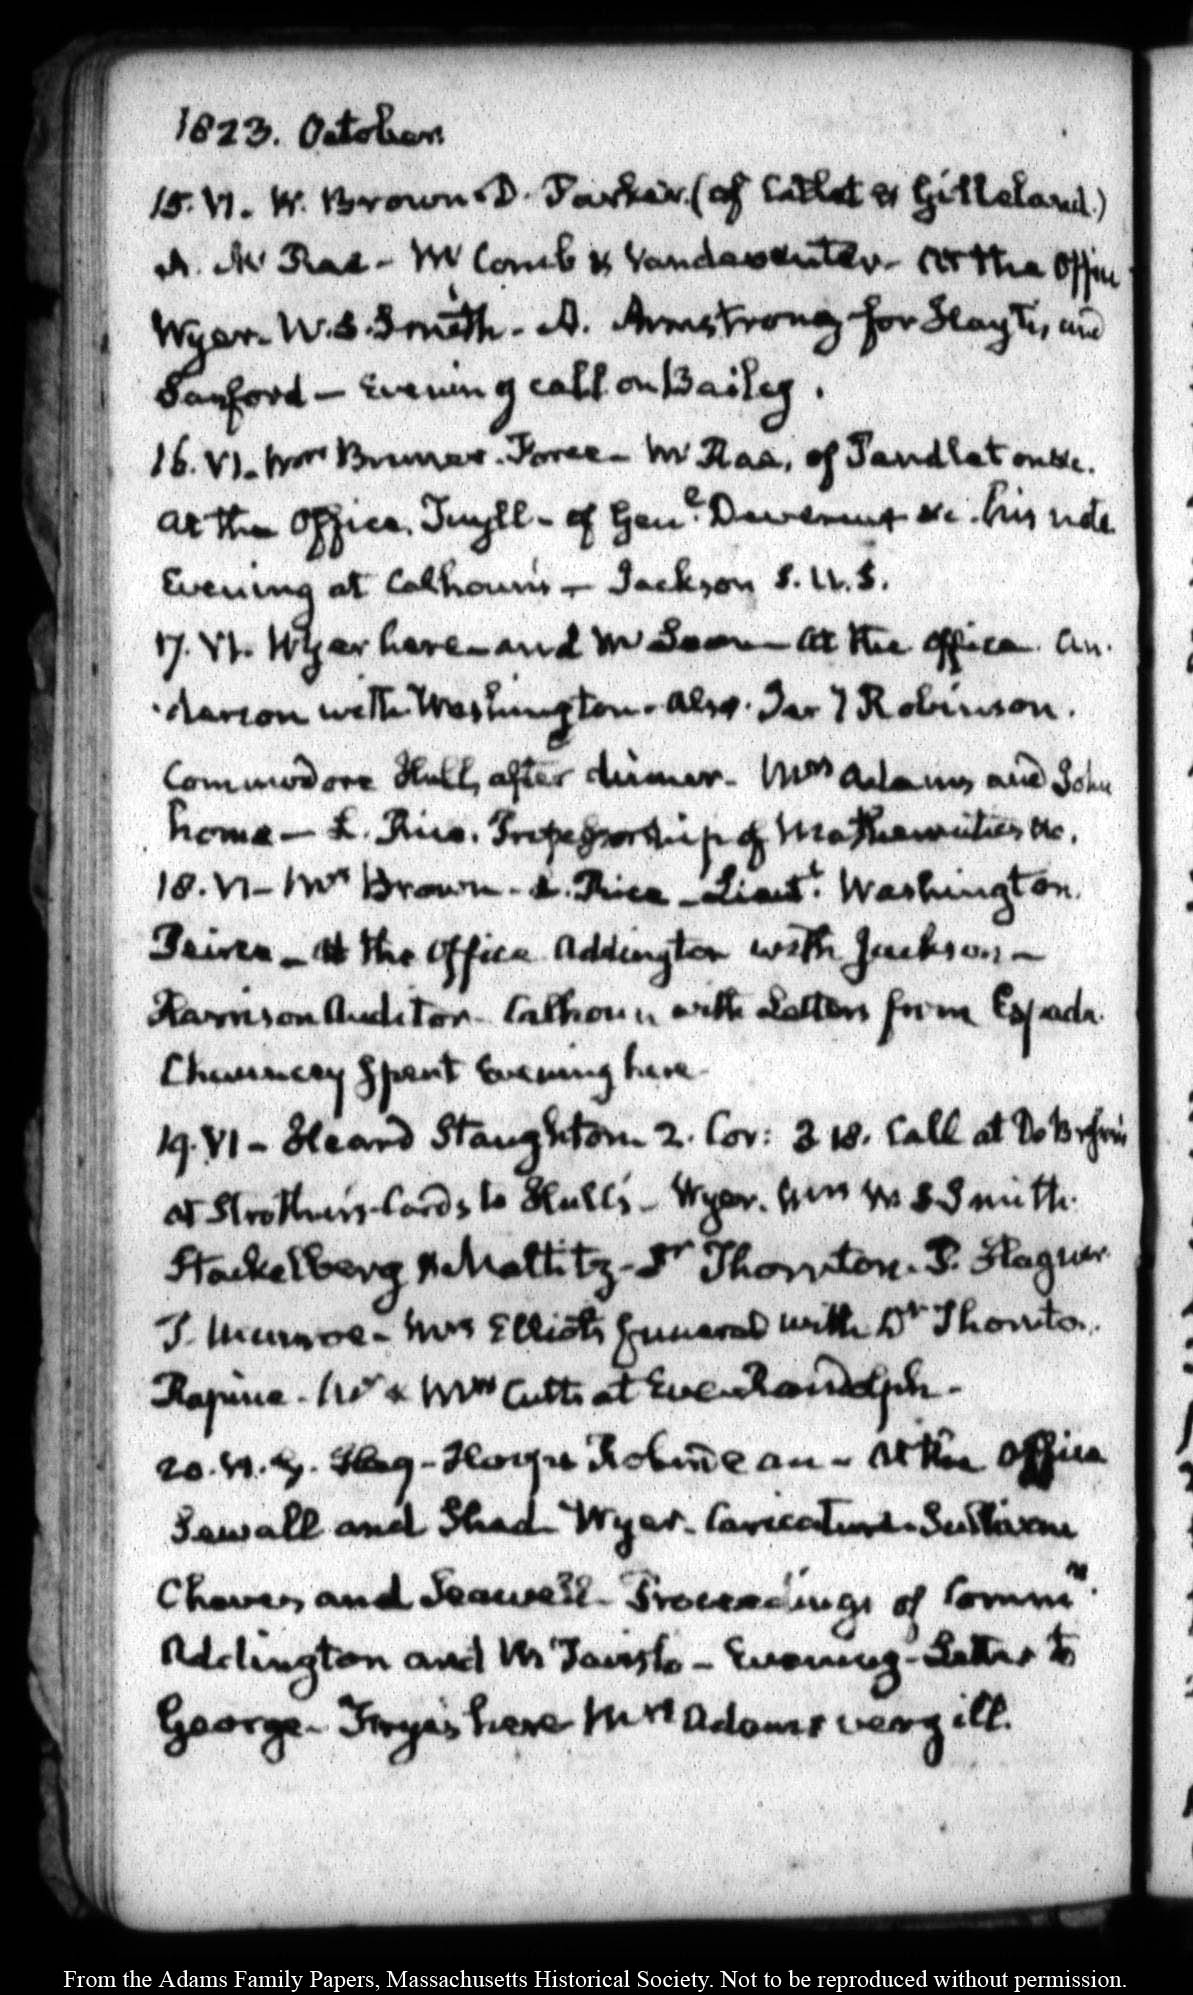 1823. October.
15. VI. W. Brown. D. Parker. (of Catlet & Gilleland.)
A. McRae - McComb & Vandeventer - At the Office
Wyer. W. S. Smith - A. Armstrong for Hayti, and
Sanford - Evening call on Bailey.
16. VI. Brunner. Force - McRae, of Pendleton &c.
at the Office. Tuyll - of Genl. Devereux &c. his note
Evening at Calhoun's - Jackson S.U.S.
17. VI. Wyer here - and McLean - At the Office. An-
derson with Washington - also. Robinson.
Commodore Hull, after dinner - Mrs Adams and John
home - L. Rice. Professorship of Mathematics &c.
18. VI - Mrs Brown - L. Rice - Lieutt. Washington.
Peirce - At the Office Addington with Jackson -
Harrison Auditor - Calhoun with Letters from Espada.
Chauncey Spent Evening here
19. VI - Heard Staughton 2. Cor: 3 18. Call at
at Strother's - Cards to Hull's - Wyer. Mrs W S Smith.
Stackelberg & Maltitz - Dr Thornton. P. Hagner
T. Munroe - Mrs Elliot's funeral with Dr Thornton.
Rapine - Mr & Mrs Cutts at Eve. Randolph -
20. VI. G. Hay - At the Office
Sewall and Shed - Wyer. Caricature - Sullivan
Cheves and Seawell - Proceedings of Commn.
Addington and McTavish - Evening - Letter to
George - Frye's here Mrs Adams very ill.
From the Adams Family Papers, Massachusetts Historical Society. Not to be reproduced without permission.